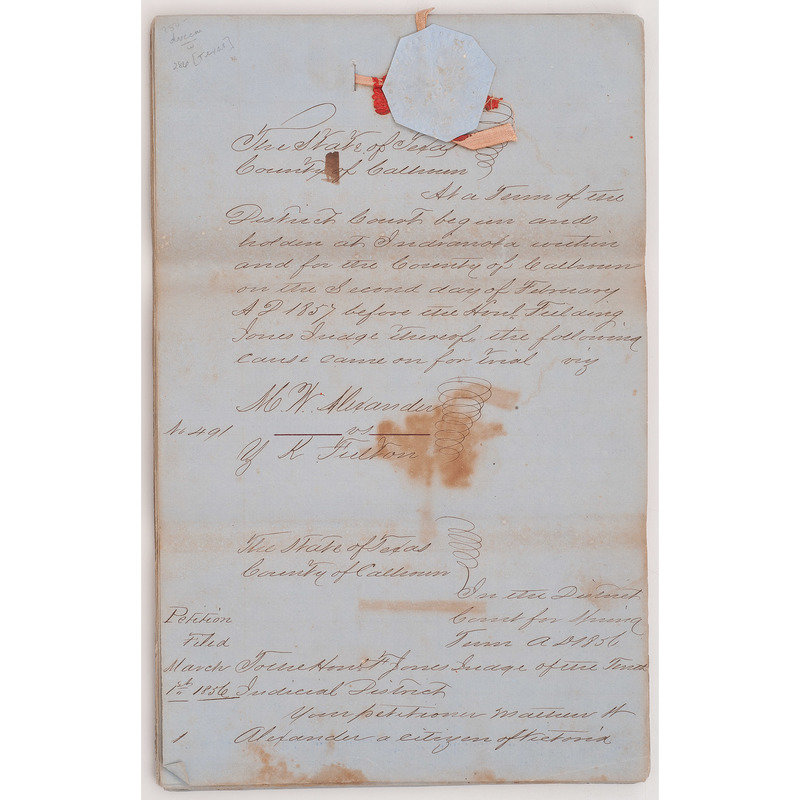 [Texas]
The State of Texas
County of Calhoun
At a Term of the
District Court begun and
holden at Indianola within
and for the County of Calhoun
on the Second day of February
A D 1857 before the Honl Fielding
Jones Judge thereof, the following
cause came on for trial viz
M. W. Alexander
No 491 vs
Y K Fulton
The State of Texas
County of Calhoun
In the District
Petition Court for Spring
Filed Term A D 1856
March To the Honl F Jones Judge of the Tend
1st 1856 Judicial District
Your petitioner Mathew W
1 Alexander a citizen of Victoria